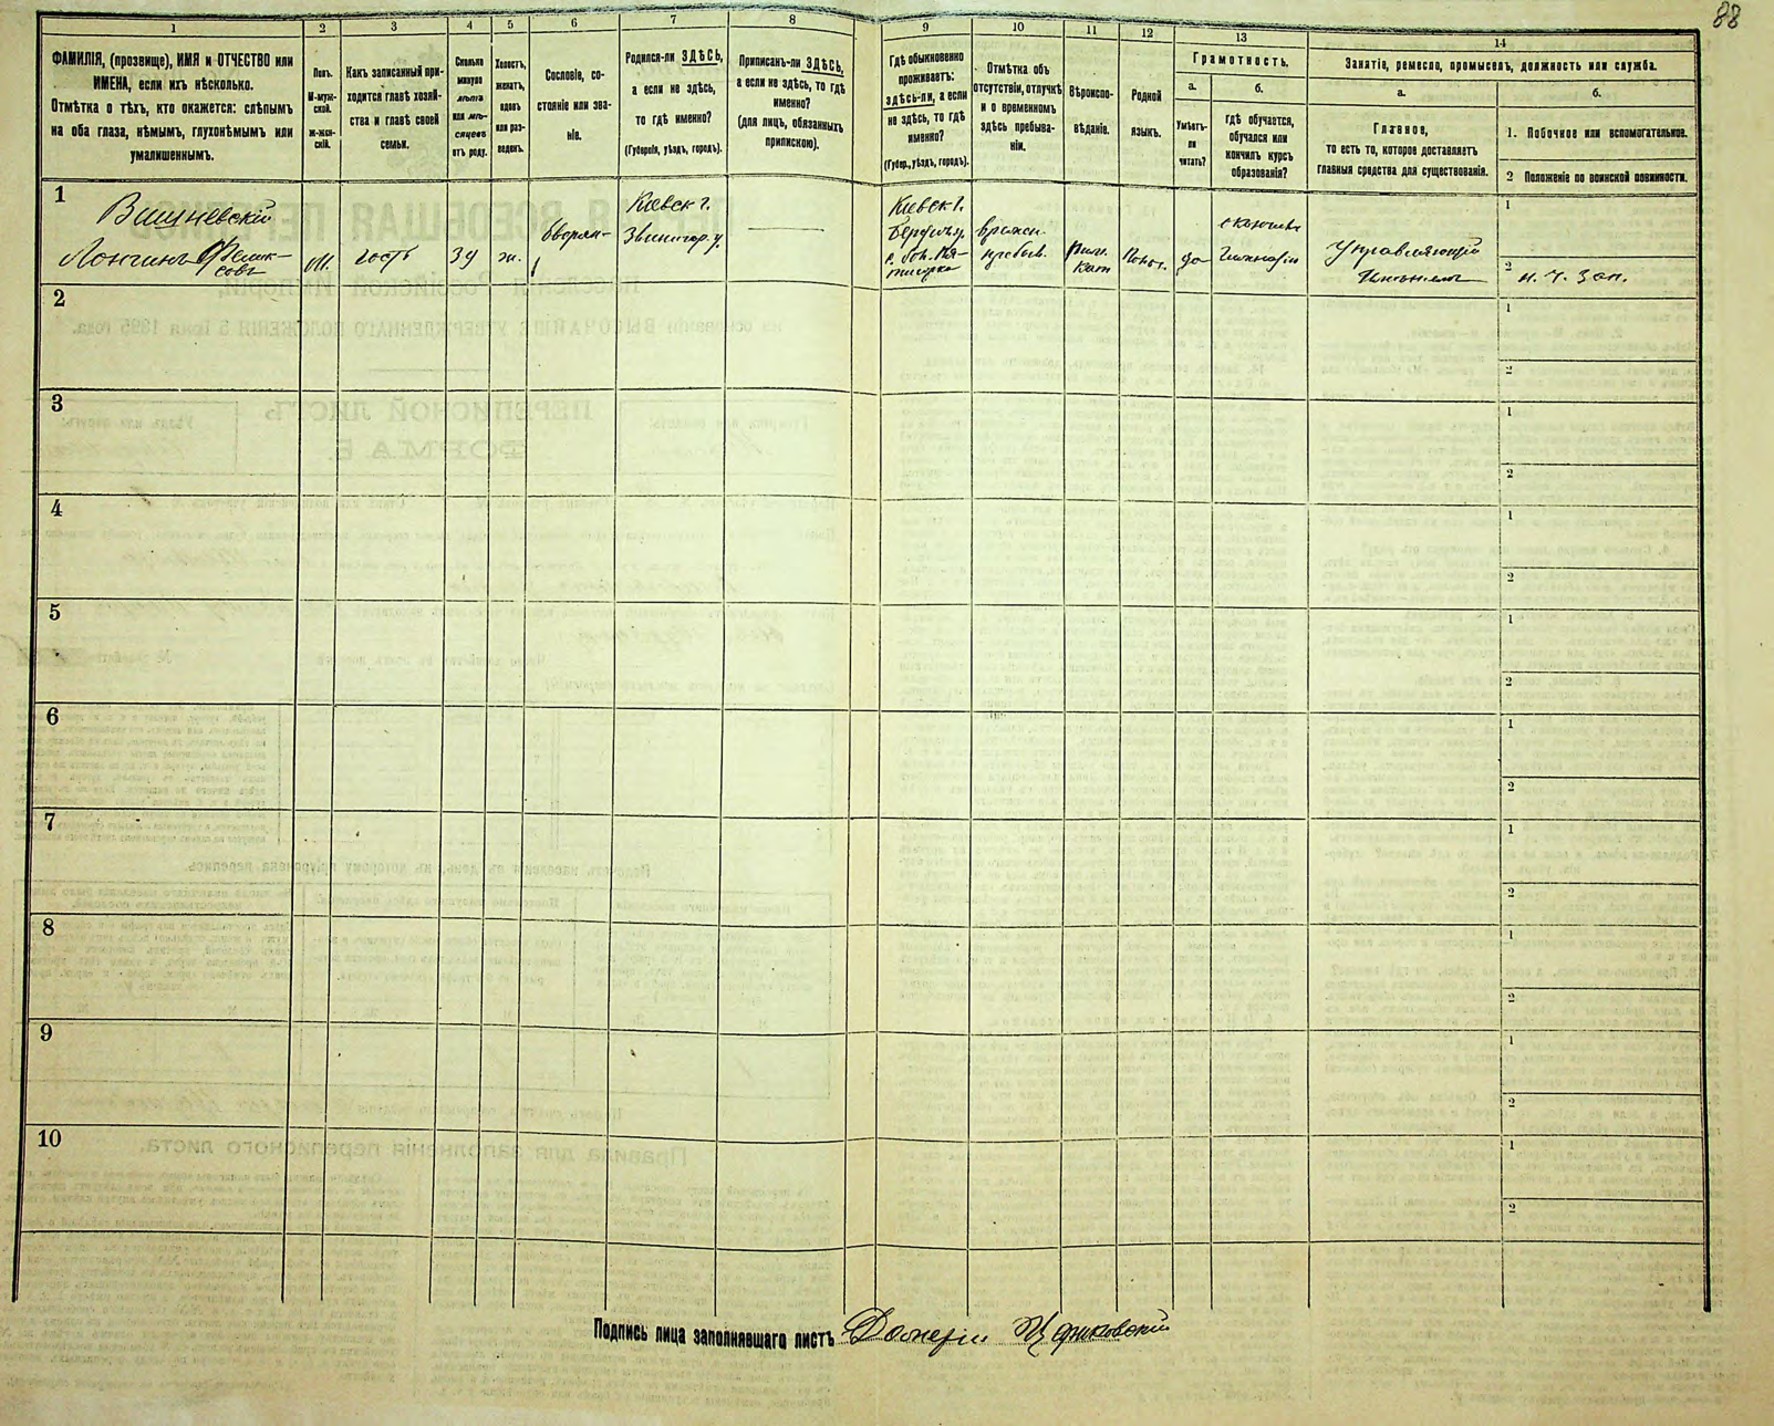 88
1
2
3
4
5
6
7
8
9
10
11
12
13
14
ФАМИЛІЯ, (прозвище), ИМЯ и ОТЧЕСТВО или
ИМЕНА, если ихъ нѣсколько.
Отмѣтка о тѣхъ, кто окажется: слѣпымъ
на оба глаза, нѣмымъ, глухонѣмымъ или
умалишеннымъ.
Полъ.
М-муж-
ской.
ж-жен-
скій.
Какъ записанный при-
ходится главѣ хозяй-
ства и главѣ своей
семьи.
Сколько
минуло
лѣтъ
или мѣ-
сяцевъ
отъ роду.
Холостъ,
женатъ,
вдовъ
или раз-
веденъ.
Сословіе, со-
стояніе или зва-
ніе.
Родился-ли ЗДѢСЬ,
а если не здѣсь,
то гдѣ именно?
(Губернія, уѣздъ, городъ).
Приписанъ-ли ЗДѢСЬ,
а если не здѣсь, то гдѣ
именно?
(для лицъ, обязанныхъ
припискою).
Гдѣ обыкновенно
проживаетъ:
здѣсь-ли, а если
не здѣсь, то гдѣ
именно?
(Губер., уѣздъ, городъ).
Отмѣтка объ
отсутствіи, отлучкѣ
и о временномъ
здѣсь пребыва-
ніи.
Вѣроиспо-
вѣданіе.
Родной
языкъ.
Грамотность.
а.
Умѣетъ-
ли
читать?
б.
гдѣ обучается,
обучался или
кончилъ курсъ
образованія?
Занятіе, ремесло, промыселъ, должность или служба.
а.
Главное,
то есть то, которое доставляетъ
главныя средства для существованія.
б.
1. Побочное или вспомогательное.
2 Положеніе по воинской повинности.
1
Вишневскій
Лонгинъ Феликсовъ
М.
гость
39
ж.
дворян-
Кіевск г.
Звенигор. у.
Кіевск г.
Бердич у.
времен.
пребыв.
Рим.
Кат
Польс.
да
окончилъ
Гимназію
Управляющій
Имѣніемъ
1
2 н. ч. зап.
2
1
2
3
1
2
4
1
2
5
1
2
6
1
2
7
1
2
8
1
2
9
1
2
10
1
2
Подпись лица заполнявшаго листъ